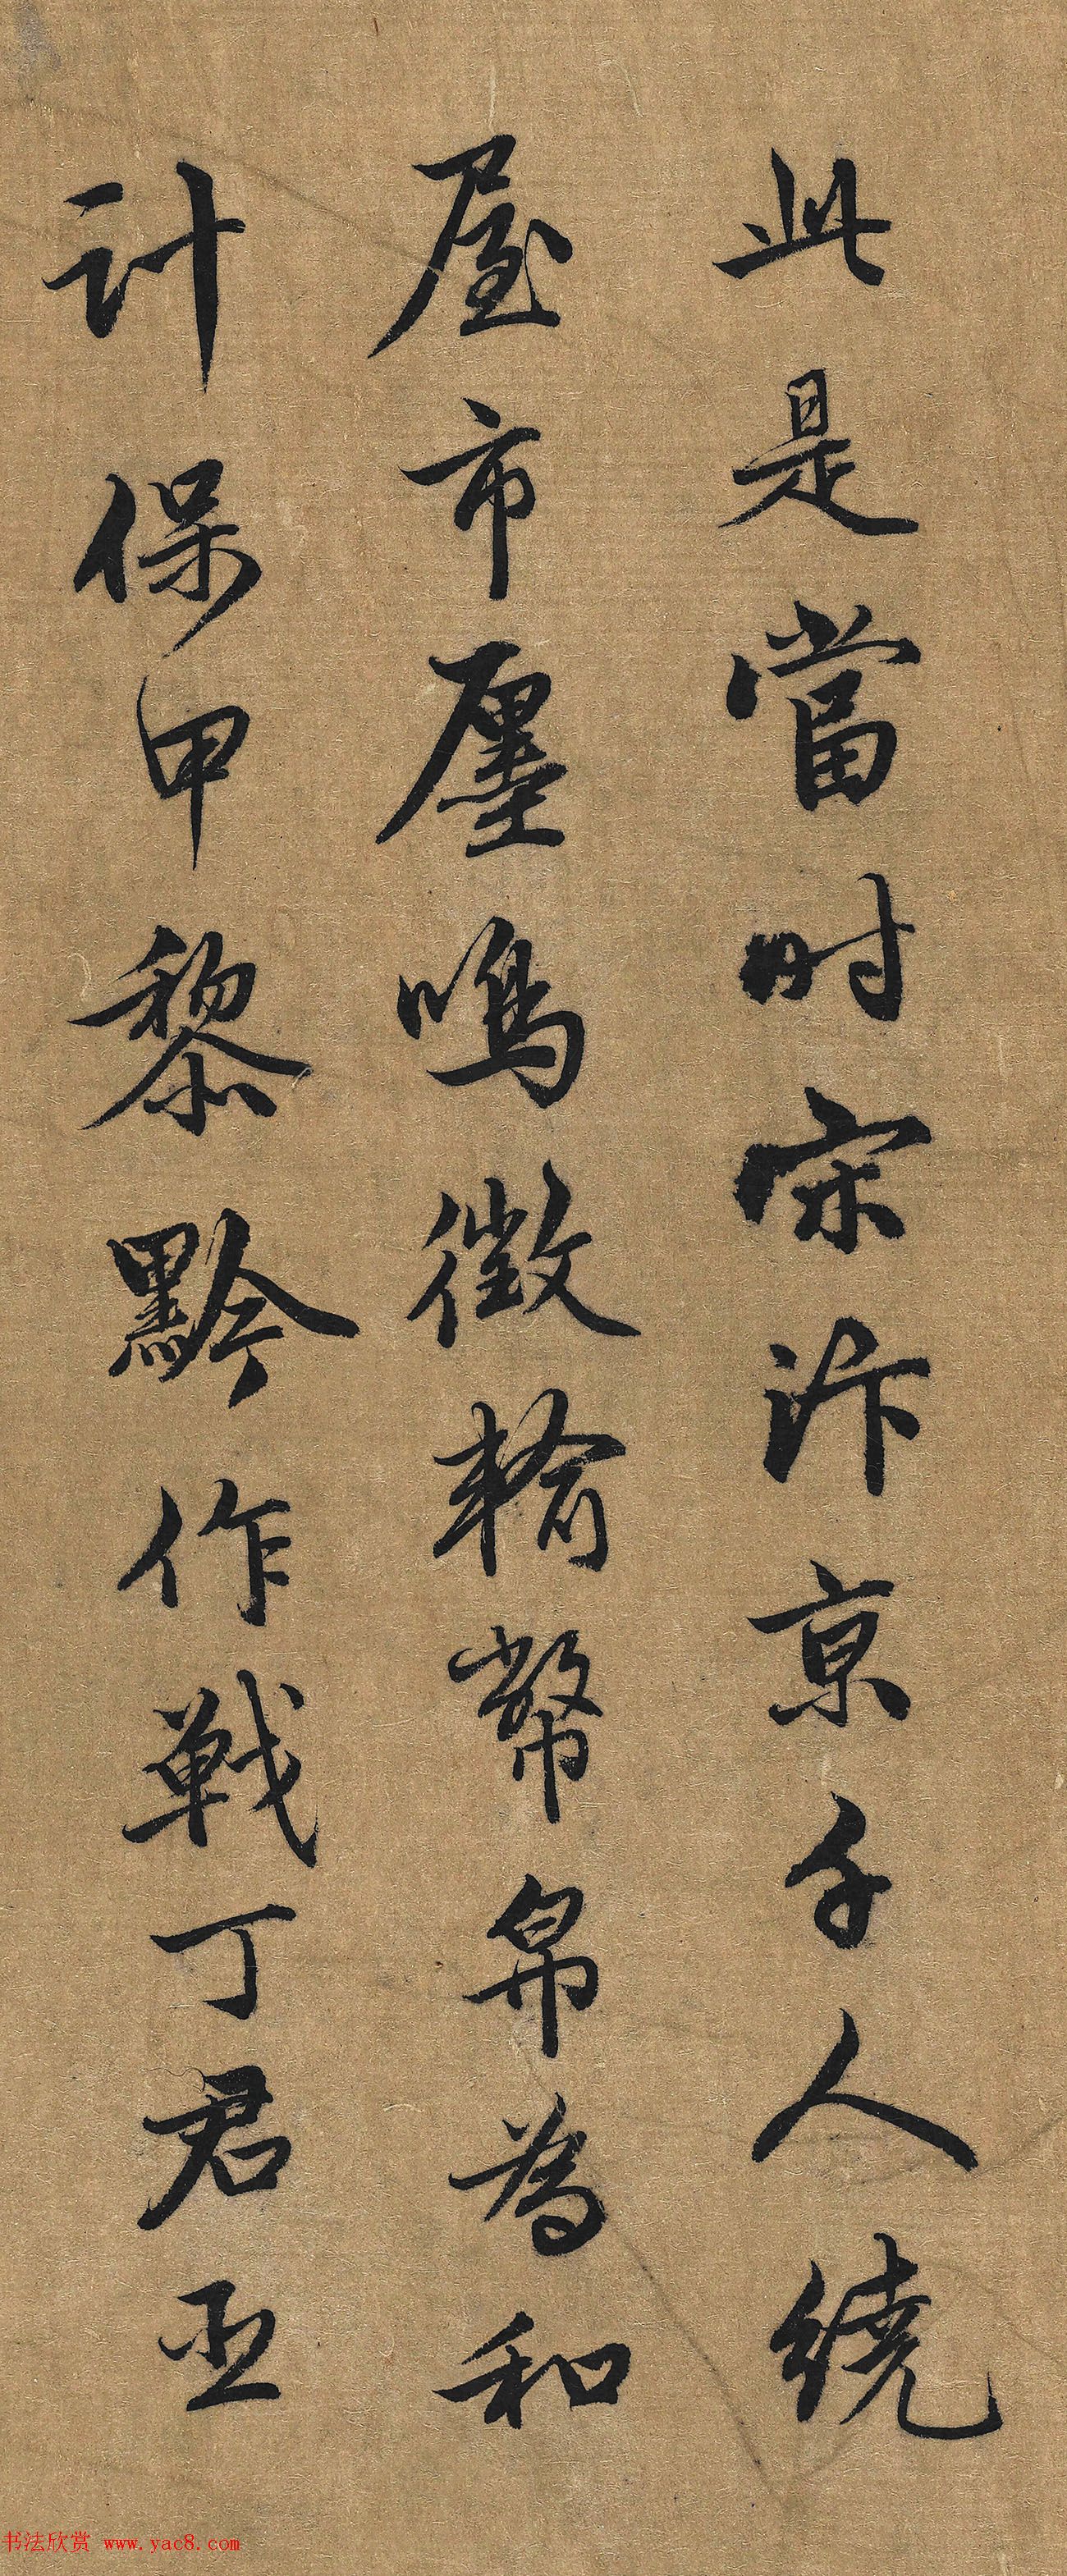 此是當時宋汴京千人繞
屋市廛鳴徵輸幣帛為和
計保甲黎黔作戰丁君臣
书法欣赏 www.yac8.com